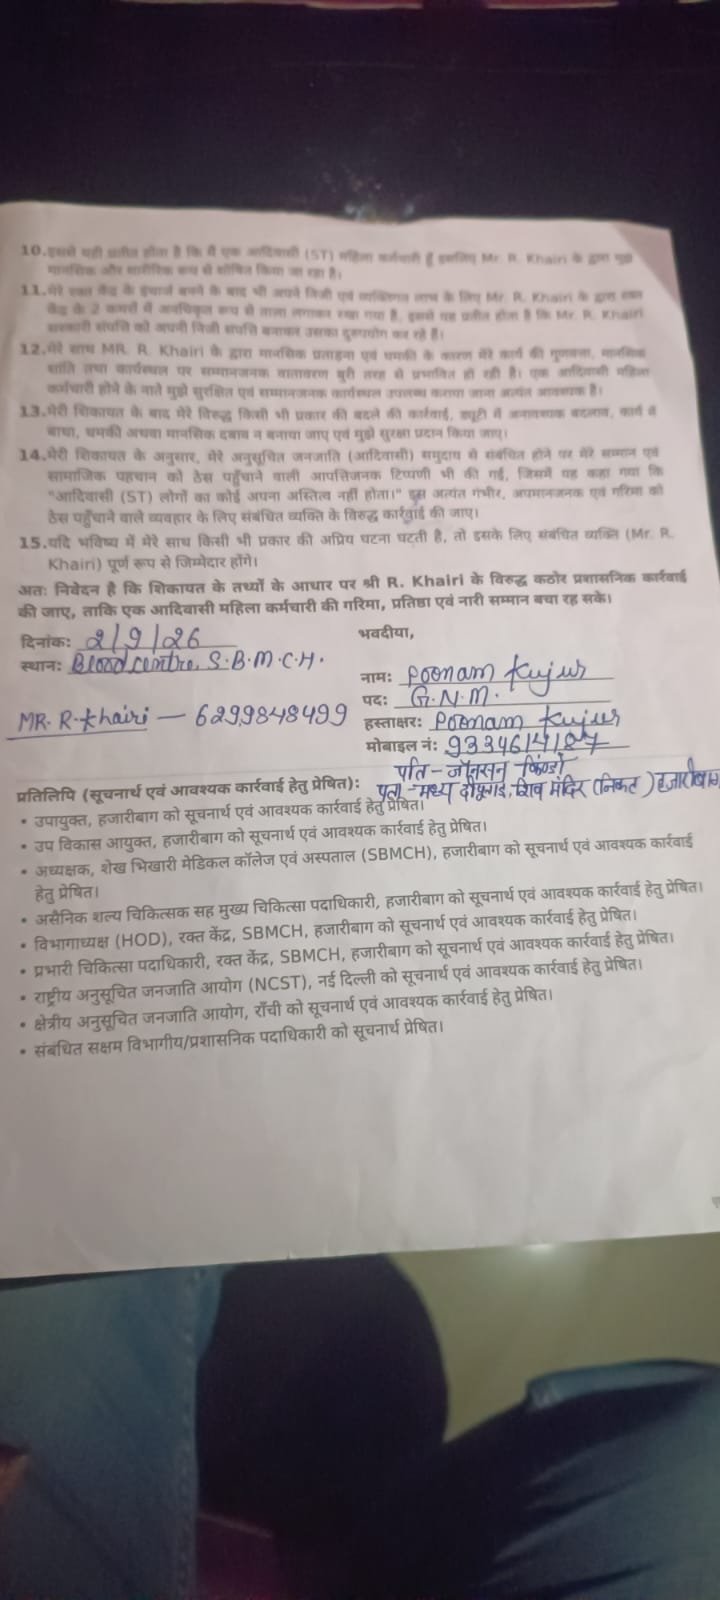 10.इससे यही प्रतीत होता है कि मैं एक आदिवासी (ST) महिला कर्मचारी हूँ इसलिए Mr. R. Khairi के द्वारा मुझे
मानसिक और शारीरिक रूप से शोषित किया जा रहा है।
11.मेरे रक्त केंद्र के इंचार्ज बनने के बाद भी अपने निजी एवं व्यक्तिगत लाभ के लिए Mr. R. Khairi के द्वारा रक्त
केंद्र के 2 कमरों में अनधिकृत रूप से ताला लगाकर रखा गया है, इससे यह प्रतीत होता है कि Mr. R. Khairi
सरकारी संपत्ति को अपनी निजी संपत्ति बनाकर उसका दुरुपयोग कर रहे हैं।
12.मेरे साथ MR. R. Khairi के द्वारा मानसिक प्रताड़ना एवं धमकी के कारण मेरे कार्य की गुणवत्ता, मानसिक
शांति तथा कार्यस्थल पर सम्मानजनक वातावरण बुरी तरह से प्रभावित हो रही है। एक आदिवासी महिला
कर्मचारी होने के नाते मुझे सुरक्षित एवं सम्मानजनक कार्यस्थल उपलब्ध कराया जाना अत्यंत आवश्यक है।
13.मेरी शिकायत के बाद मेरे विरुद्ध किसी भी प्रकार की बदले की कार्रवाई, ड्यूटी में अनावश्यक बदलाव, कार्य में
बाधा, धमकी अथवा मानसिक दबाव न बनाया जाए एवं मुझे सुरक्षा प्रदान किया जाए।
14.मेरी शिकायत के अनुसार, मेरे अनुसूचित जनजाति (आदिवासी) समुदाय से संबंधित होने पर मेरे सम्मान एवं
सामाजिक पहचान को ठेस पहुँचाने वाली आपत्तिजनक टिप्पणी भी की गई, जिसमें यह कहा गया कि
"आदिवासी (ST) लोगों का कोई अपना अस्तित्व नहीं होता।" इस अत्यंत गंभीर, अपमानजनक एवं गरिमा को
ठेस पहुँचाने वाले व्यवहार के लिए संबंधित व्यक्ति के विरुद्ध कार्रवाई की जाए।
15.यदि भविष्य में मेरे साथ किसी भी प्रकार की अप्रिय घटना घटती है, तो इसके लिए संबंधित व्यक्ति (Mr. R.
Khairi) पूर्ण रूप से जिम्मेदार होंगे।
अतः निवेदन है कि शिकायत के तथ्यों के आधार पर श्री R. Khairi के विरुद्ध कठोर प्रशासनिक कार्रवाई
की जाए, ताकि एक आदिवासी महिला कर्मचारी की गरिमा, प्रतिष्ठा एवं नारी सम्मान बचा रह सके।
दिनांक: 2/9/26
स्थान: Blood centre, S.B.M.C.H.
भवदीया,
नाम: Poonam Kujur
पद: G.N.M.
MR. R. Khairi — 6299848499
हस्ताक्षर: Poonam Kujur
मोबाइल नं: 9334614187
पति - जॉनसन किण्डो
पता - मध्य शिव मंदिर (निकट) हजारीबाग
प्रतिलिपि (सूचनार्थ एवं आवश्यक कार्रवाई हेतु प्रेषित):
• उपायुक्त, हजारीबाग को सूचनार्थ एवं आवश्यक कार्रवाई हेतु प्रेषित।
• उप विकास आयुक्त, हजारीबाग को सूचनार्थ एवं आवश्यक कार्रवाई हेतु प्रेषित।
• अध्यक्षक, शेख भिखारी मेडिकल कॉलेज एवं अस्पताल (SBMCH), हजारीबाग को सूचनार्थ एवं आवश्यक कार्रवाई
हेतु प्रेषित।
• असैनिक शल्य चिकित्सक सह मुख्य चिकित्सा पदाधिकारी, हजारीबाग को सूचनार्थ एवं आवश्यक कार्रवाई हेतु प्रेषित।
• विभागाध्यक्ष (HOD), रक्त केंद्र, SBMCH, हजारीबाग को सूचनार्थ एवं आवश्यक कार्रवाई हेतु प्रेषित।
• प्रभारी चिकित्सा पदाधिकारी, रक्त केंद्र, SBMCH, हजारीबाग को सूचनार्थ एवं आवश्यक कार्रवाई हेतु प्रेषित।
• राष्ट्रीय अनुसूचित जनजाति आयोग (NCST), नई दिल्ली को सूचनार्थ एवं आवश्यक कार्रवाई हेतु प्रेषित।
• क्षेत्रीय अनुसूचित जनजाति आयोग, राँची को सूचनार्थ एवं आवश्यक कार्रवाई हेतु प्रेषित।
• संबंधित सक्षम विभागीय/प्रशासनिक पदाधिकारी को सूचनार्थ प्रेषित।